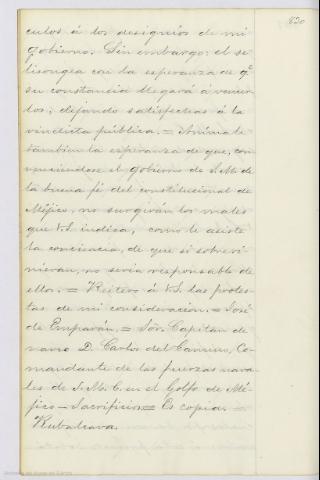 820
culos á los designios de mi
gobierno. Sin embargo: él se
lisongea con la esperanza de qe
su constancia llegará á vencer
los, dejando satisfechas á la
vindicta pública. = Anímale
tambien la esperanza de que, con
venciéndose el gobierno de S.M. de
la buena fé del constitucional de
Méjico, no surgirán los males
que V.S. indica, como le asiste
la conciencia, de que si sobrevi-
nieran, no seria responsable de
ellos. = Reitero á V.S. las protes-
tas de mi consideracion. = José
de Emparán. = Sor. Capitan de
navio D. Carlos del Camino, Co-
mandante de las fuerzas nava-
les de S.M.C. en el Golfo de Mé-
jico - Sacrificios = Es copia =
Rubalcava.